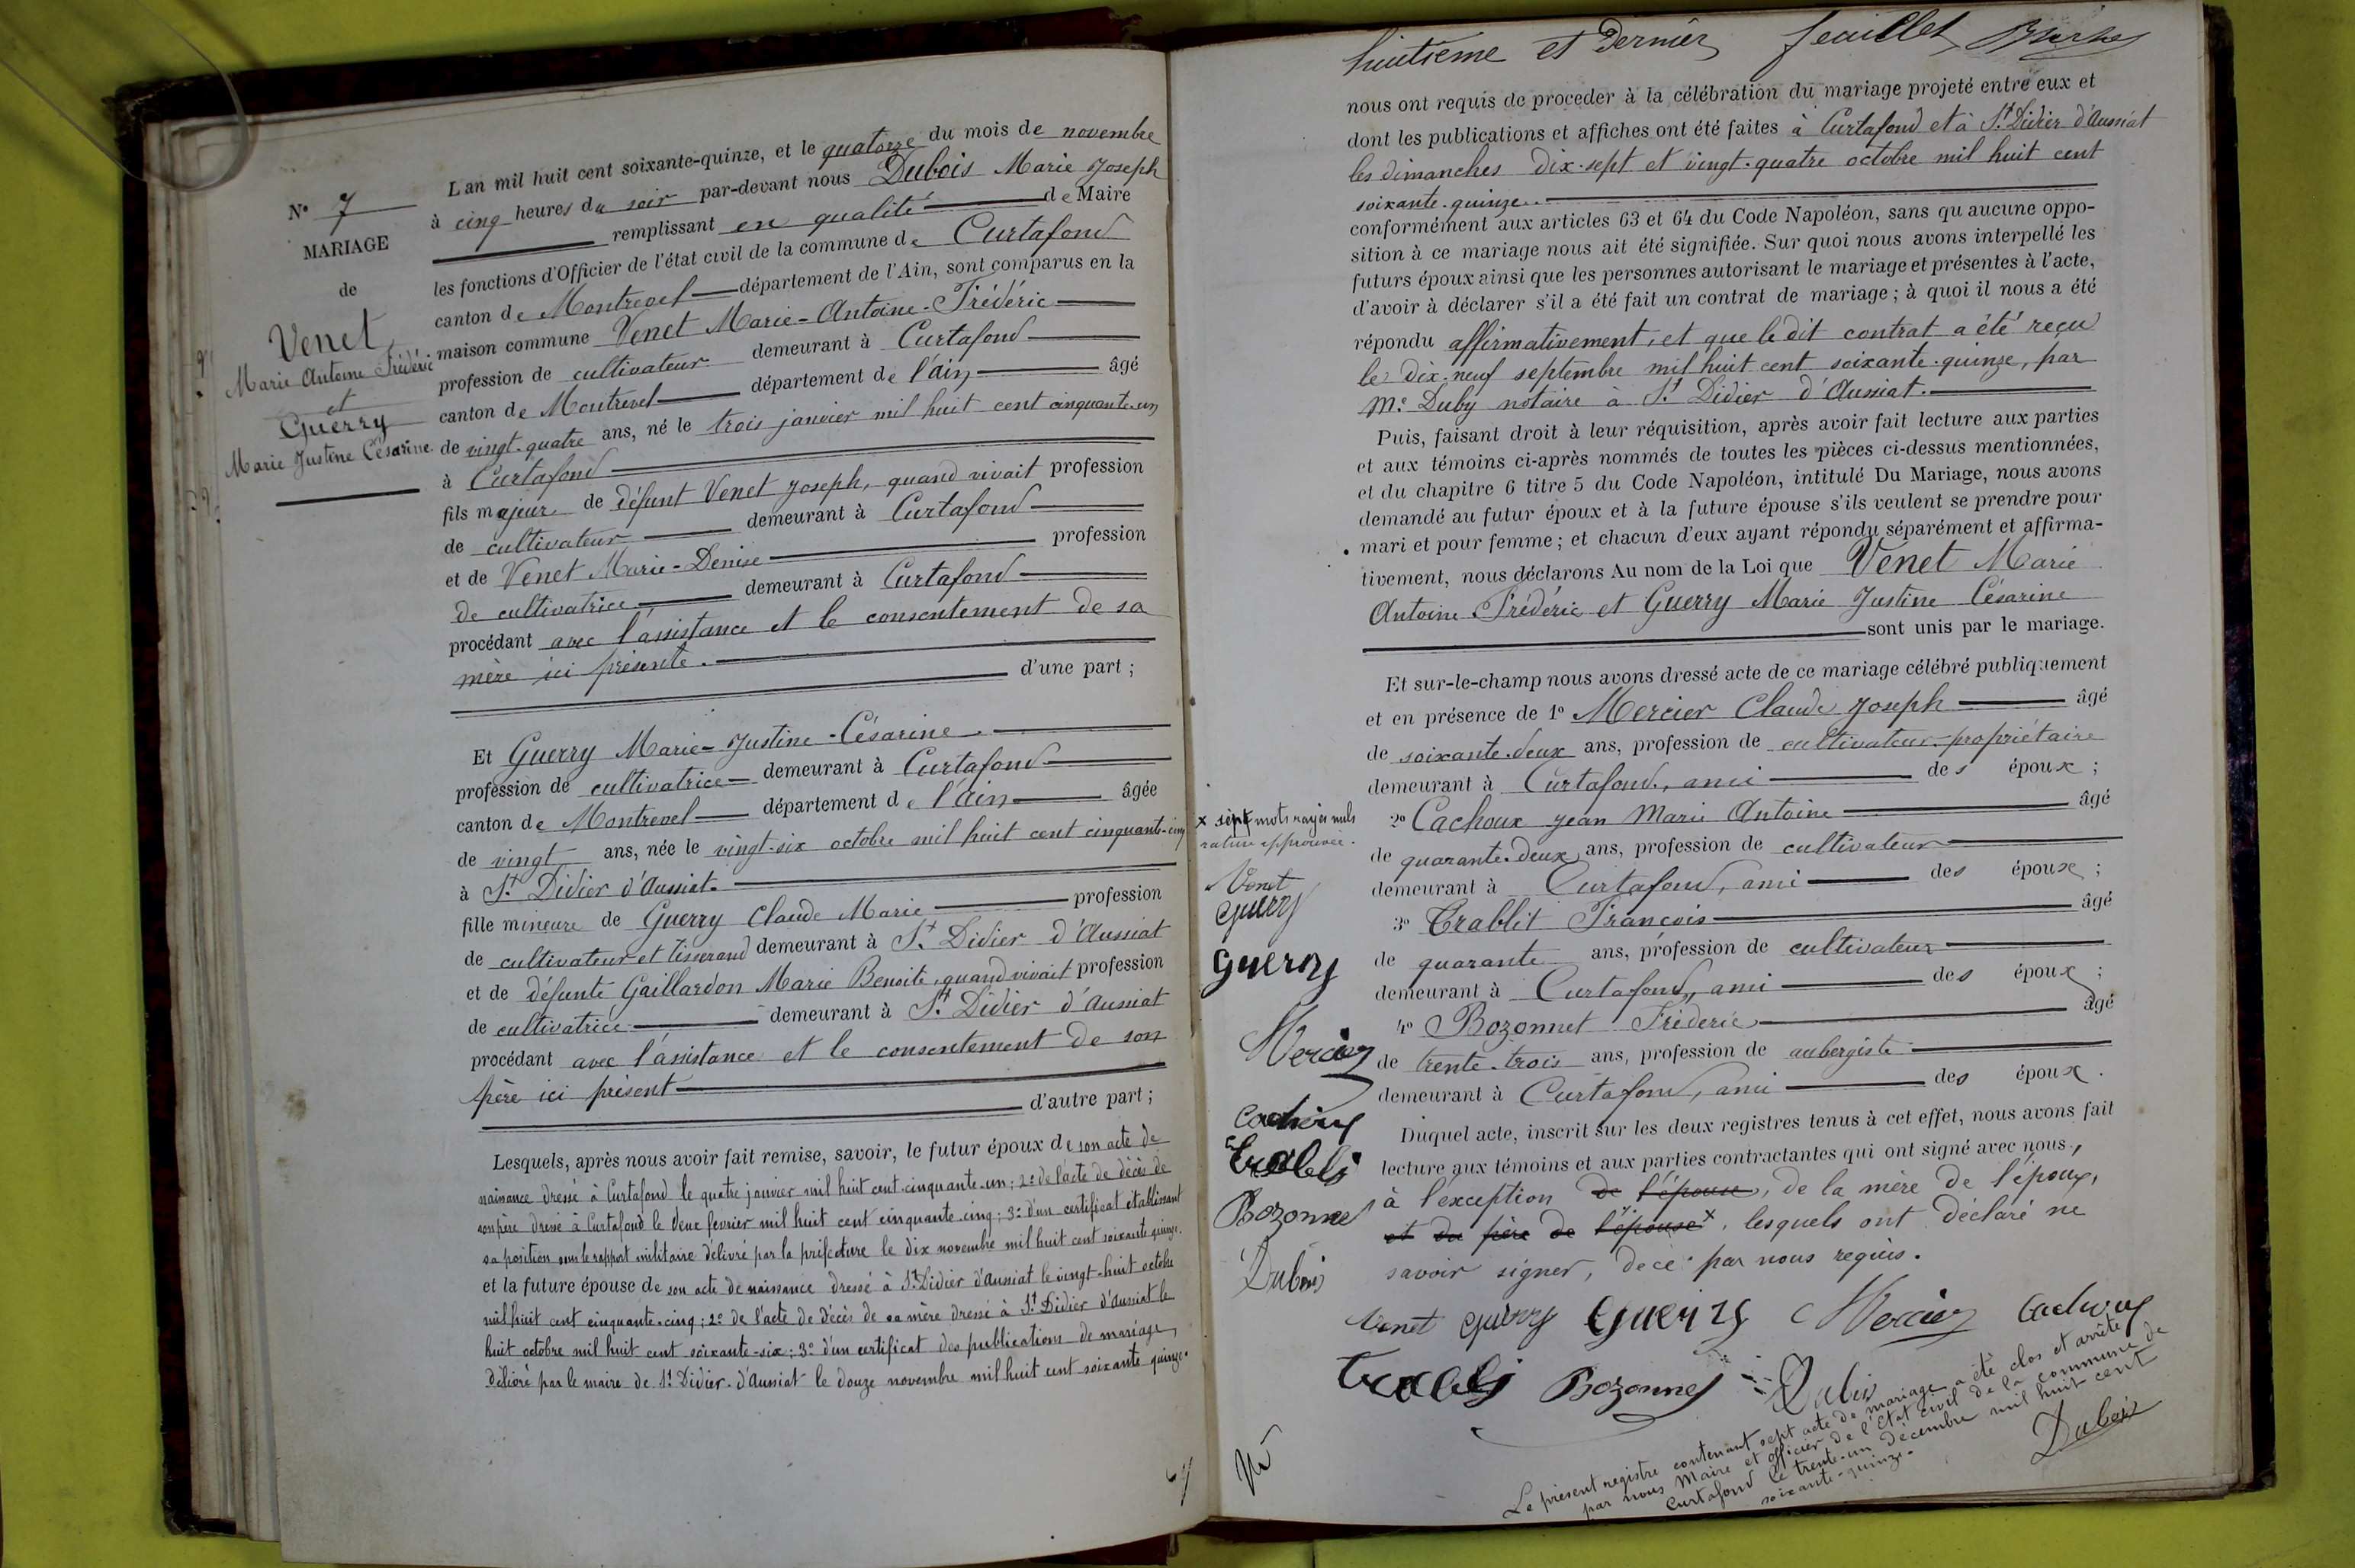 N° 7
MARIAGE
de
Venet
Marie Antoine Frédéric
et
Guerry
Marie Justine Césarine
L'an mil huit cent soixante-quinze, et le quatorze du mois de novembre
à cinq heures du soir par-devant nous Dubois Marie Joseph
remplissant en qualité de Maire
les fonctions d'Officier de l'état civil de la commune de Curtafond
canton de Montrevel département de l'Ain, sont comparus en la
maison commune Venet Marie-Antoine-Frédéric
profession de cultivateur demeurant à Curtafond
canton de Montrevel département de l'ain âgé
de vingt-quatre ans, né le trois janvier mil huit cent cinquante-un
à Curtafond
fils majeur de défunt Venet Joseph, quand vivait profession
de cultivateur demeurant à Curtafond
et de Venet Marie-Denise profession
de cultivatrice demeurant à Curtafond
procédant avec l'assistance et le consentement de sa
mère ici présente.
d'une part ;
Et Guerry Marie-Justine-Césarine
profession de cultivatrice demeurant à Curtafond
canton de Montrevel département de l'ain âgée
de vingt ans, née le vingt-six octobre mil huit cent cinquante-cinq
à St Didier d'Aussiat.
fille mineure de Guerry Claude Marie profession
de cultivateur et tisserand demeurant à St Didier d'Aussiat
et de défunte Gaillardon Marie Benoite, quand vivait profession
de cultivatrice demeurant à St Didier d'Aussiat
procédant avec l'assistance et le consentement de son
père ici présent
d'autre part ;
Lesquels, après nous avoir fait remise, savoir, le futur époux de son acte de
naissance dressé à Curtafond le quatre janvier mil huit cent cinquante-un ; 2° de l'acte de décès de
son père dressé à Curtafond le deux février mil huit cent cinquante-cinq ; 3° d'un certificat établissant
sa position sous le rapport militaire délivré par la préfecture le dix novembre mil huit cent soixante quinze.
et la future épouse de son acte de naissance dressé à St Didier d'Aussiat le vingt-huit octobre
mil huit cent cinquante-cinq ; 2° de l'acte de décès de sa mère dressé à St Didier d'Aussiat le
huit octobre mil huit cent soixante-six ; 3° d'un certificat des publications de mariage,
délivré par le maire de St Didier d'Aussiat le douze novembre mil huit cent soixante quinze.
huitième et dernier feuillet
nous ont requis de proceder à la célébration du mariage projeté entre eux et
dont les publications et affiches ont été faites à Curtafond et à St Didier d'Aussiat
les dimanches dix-sept et vingt-quatre octobre mil huit cent
soixante-quinze.
conformément aux articles 63 et 64 du Code Napoléon, sans qu'aucune oppo-
sition à ce mariage nous ait été signifiée. Sur quoi nous avons interpellé les
futurs époux ainsi que les personnes autorisant le mariage et présentes à l'acte,
d'avoir à déclarer s'il a été fait un contrat de mariage ; à quoi il nous a été
répondu affirmativement, et que le dit contrat a été reçu
le dix-neuf septembre mil huit cent soixante-quinze, par
Me Duby notaire à St Didier d'Aussiat.
Puis, faisant droit à leur réquisition, après avoir fait lecture aux parties
et aux témoins ci-après nommés de toutes les pièces ci-dessus mentionnées,
et du chapitre 6 titre 5 du Code Napoléon, intitulé Du Mariage, nous avons
demandé au futur époux et à la future épouse s'ils veulent se prendre pour
mari et pour femme ; et chacun d'eux ayant répondu séparément et affirma-
tivement, nous déclarons Au nom de la Loi que Venet Marie
Antoine-Frédéric et Guerry Marie Justine Césarine
sont unis par le mariage.
Et sur-le-champ nous avons dressé acte de ce mariage célébré publiquement
et en présence de 1° Mercier Claude Joseph âgé
de soixante-deux ans, profession de cultivateur-propriétaire
demeurant à Curtafond, ami des époux ;
2° Cachoux Jean Marie Antoine âgé
de quarante-deux ans, profession de cultivateur
demeurant à Curtafond, ami des époux ;
3° Trablit François âgé
de quarante ans, profession de cultivateur
demeurant à Curtafond, ami des époux ;
4° Bozonnet Fréderic âgé
de trente-trois ans, profession de aubergiste
demeurant à Curtafond, ami des époux.
Duquel acte, inscrit sur les deux registres tenus à cet effet, nous avons fait
lecture aux témoins et aux parties contractantes qui ont signé avec nous,
à l'exception de l'épouse, de la mère de l'époux,
et du père de l'épouse x, lesquels ont déclaré ne
savoir signer, de ce par nous requis.
x sept mots rayés nuls
rature approuvée.
Venet
Guerry
Guerry
Mercier
Cachoux
Trabli
Bozonnet
Dubois
Venet Guerry Guerry Mercier Cachoux
Trabli Bozonnet Dubois
Le présent registre contenant sept acte de mariage a été clos et arrêté
par nous Maire et officier de l'Etat civil de la commune de
Curtafond le trente-un décembre mil huit cent
soixante-quinze.
Dubois